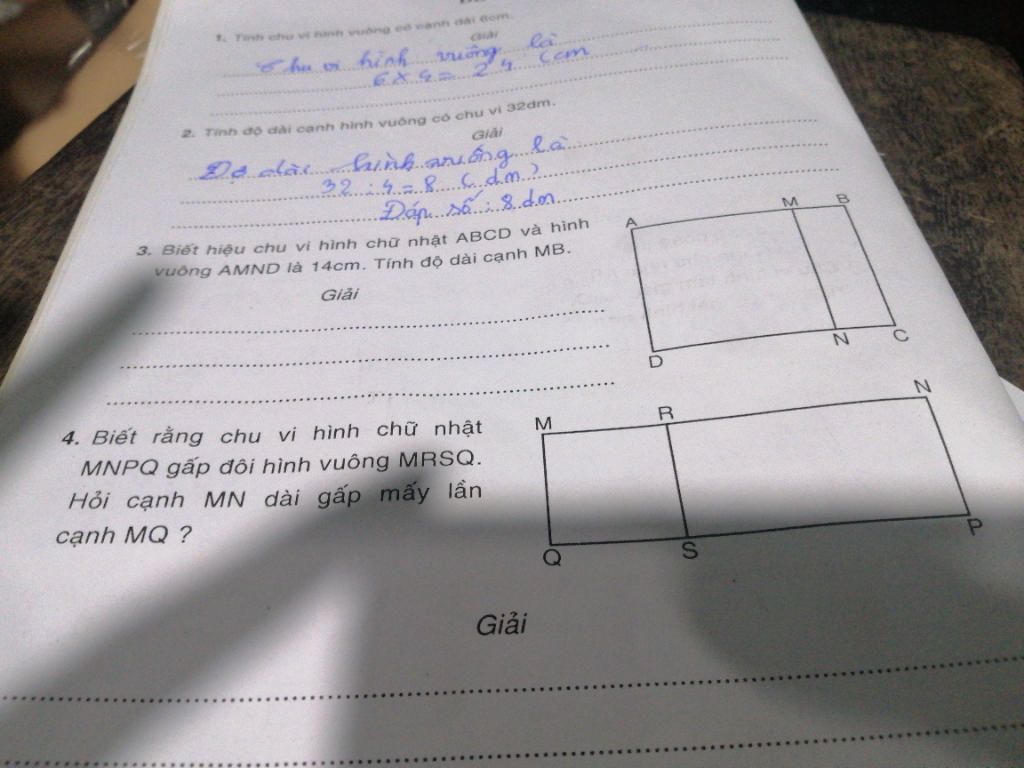 1. Tính chu vi hình vuông có cạnh dài 6cm.
Giải
Chu vi hình vuông là
6 × 4 = 24 (cm
2. Tính độ dài cạnh hình vuông có chu vi 32dm.
Giải
Độ dài hình vuông là
32 : 4 = 8 (dm)
Đáp số : 8 dm
3. Biết hiệu chu vi hình chữ nhật ABCD và hình
vuông AMND là 14cm. Tính độ dài cạnh MB.
Giải
A M B
D N C
4. Biết rằng chu vi hình chữ nhật
MNPQ gấp đôi hình vuông MRSQ.
Hỏi cạnh MN dài gấp mấy lần
cạnh MQ ?
M R N
Q S P
Giải